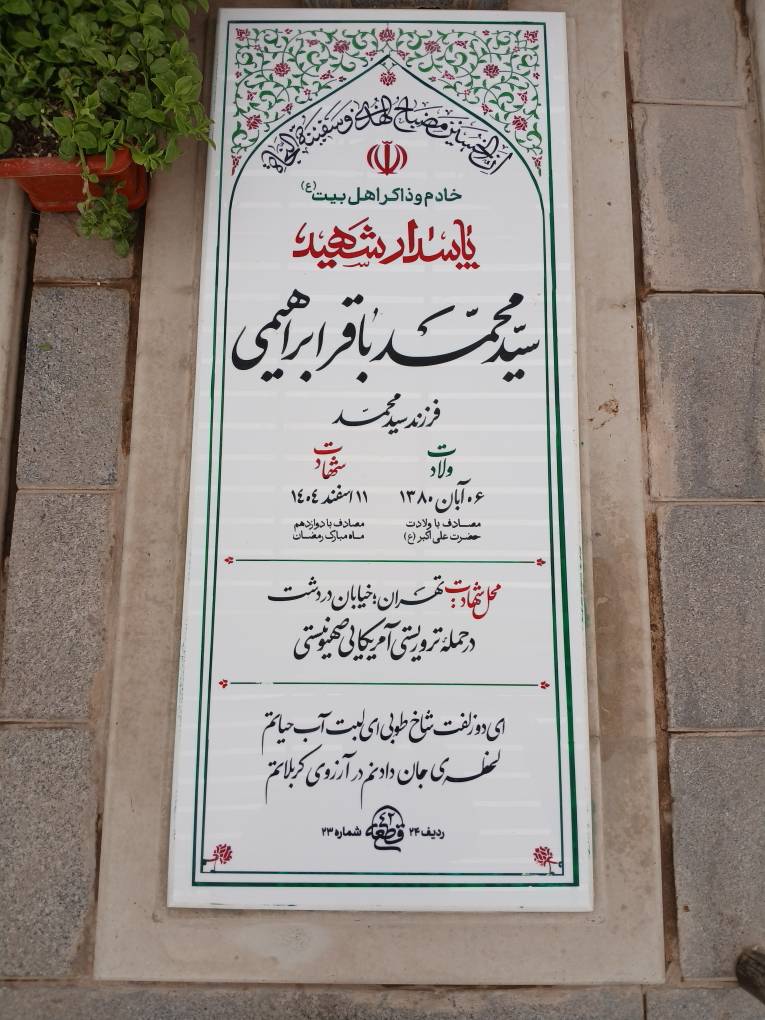 ان الحسین مصباح الهدی و سفینة النجاة
خادم و ذاکر اهل بیت (ع)
پاسدار شهید
سیّد محمّد باقر ابراهیمی
فرزند سید محمّد
ولادت
۰۶ آبان ۱۳۸۰
مصادف با ولادت
حضرت علی اکبر (ع)
شهادت
۱۱ اسفند ۱۴۰۴
مصادف با دوازدهم
ماه مبارک رمضان
محل شهادت: تهران؛ خیابان دردشت
در حملهٔ تروریستی آمریکایی صهیونیستی
ای دو زلفت شاخ طوبی ای لبت آب حیاتم
لحظه‌ی جان دادنم در آرزوی کربلایتم
ردیف ۲۴ قطعه ۴۲ شماره ۲۳